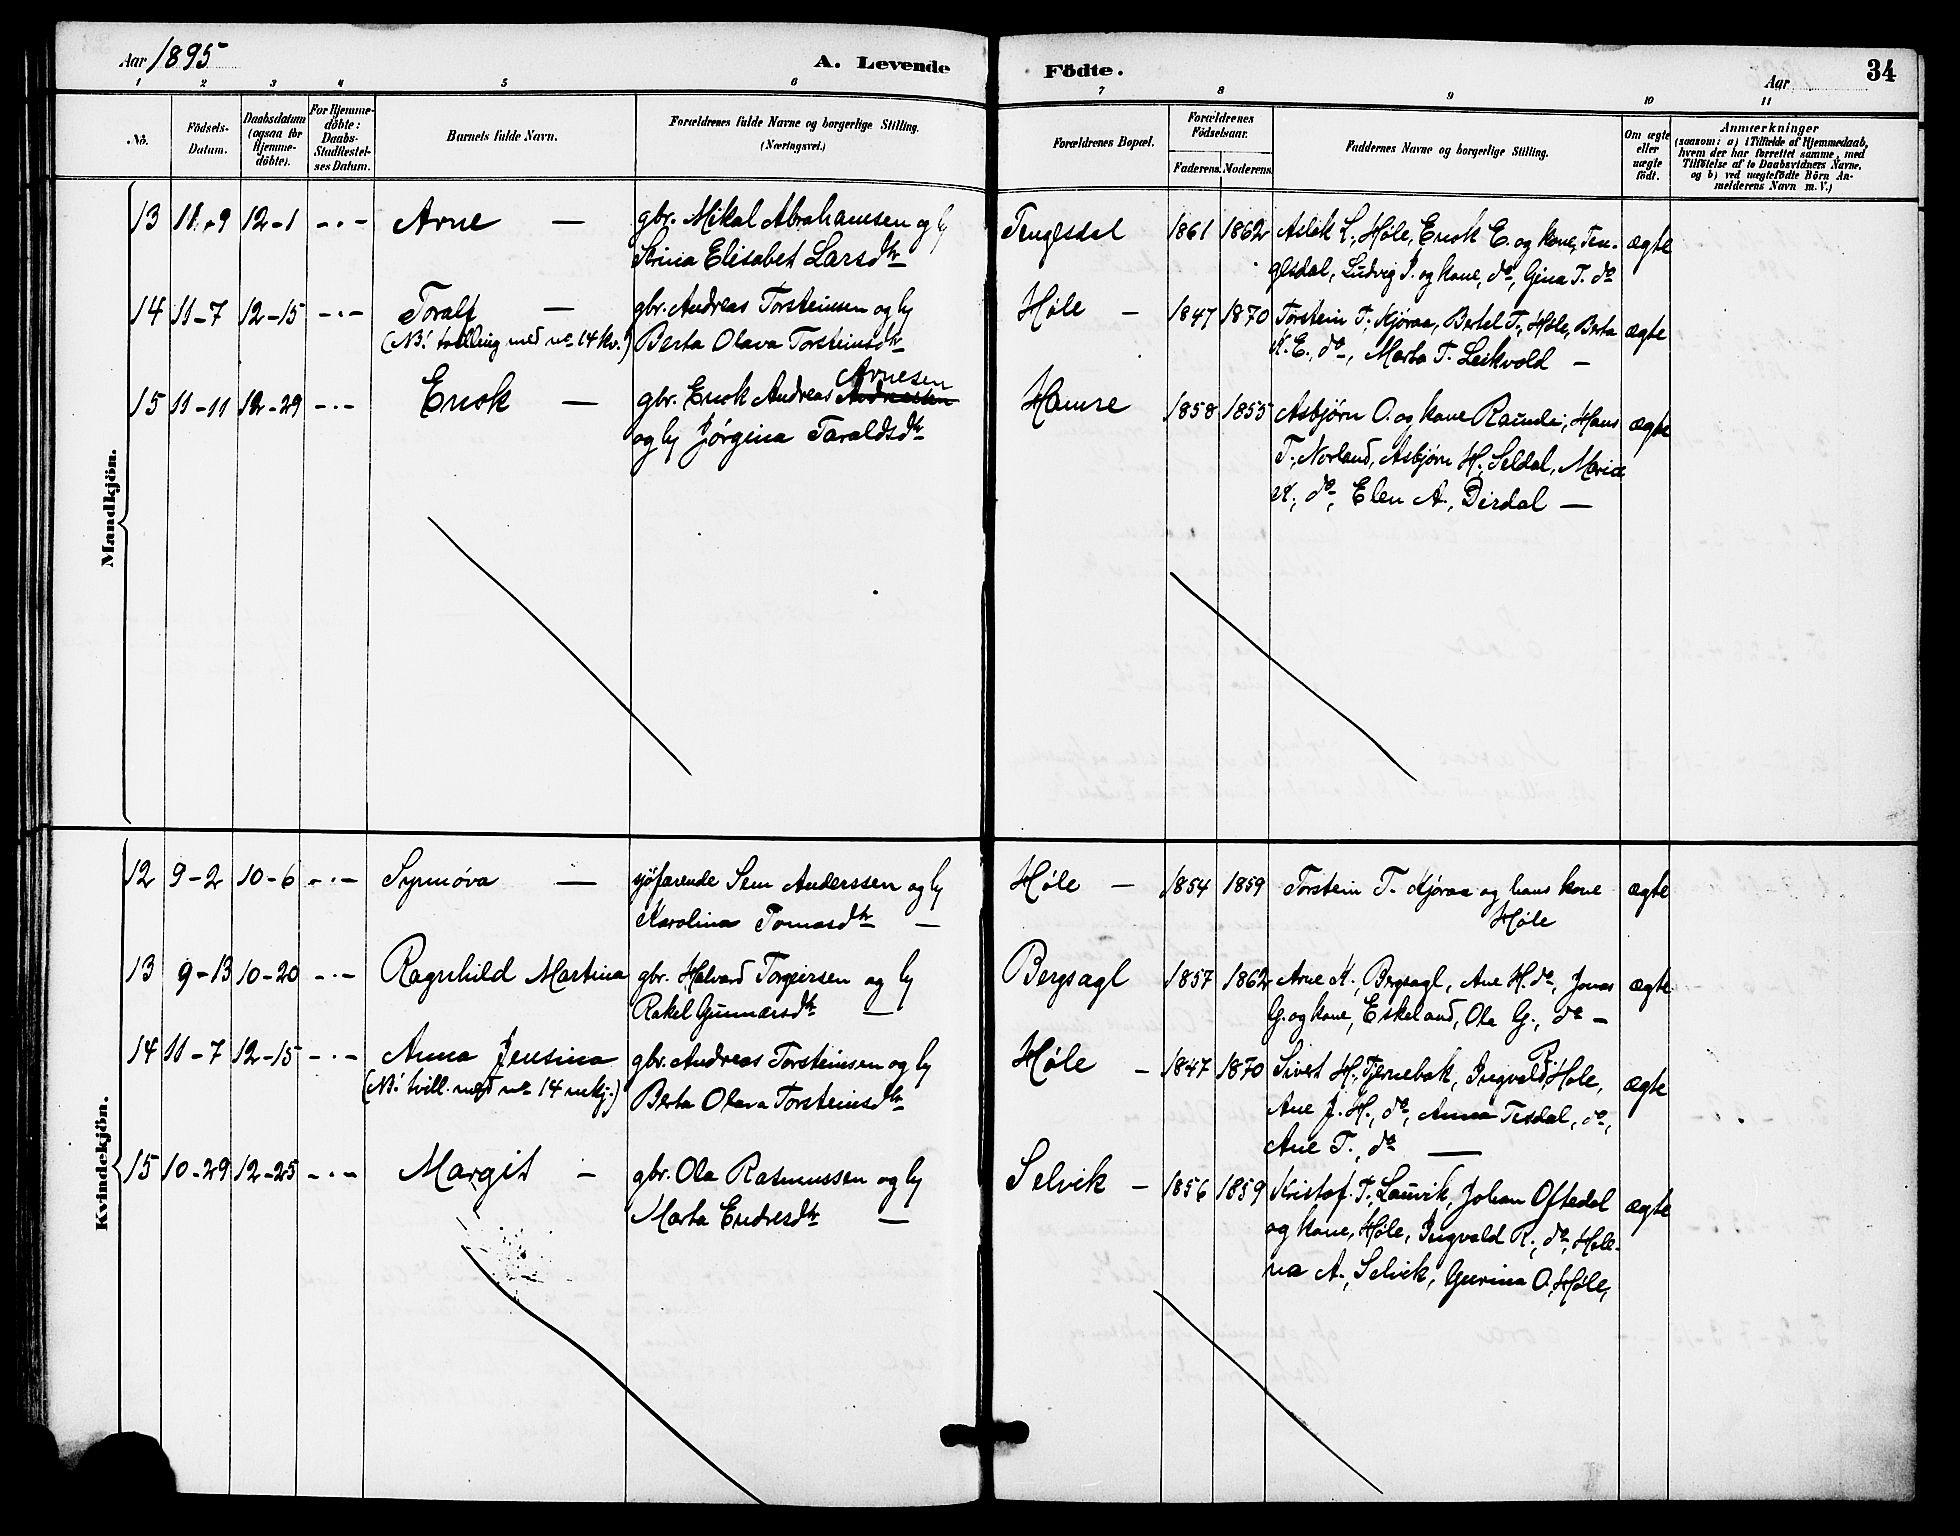 Aar 1895
A. Levende
Födte.
Aar
34
1 2 3 4 5 6 7 8 9 10 11
No.
Födsels-
Datum.
Daabsdatum
(ogsaa for
Hjemme-
döbte).
For Hjemme-
döbte:
Daabs-
Stadfæstel-
ses Datum.
Barnets fulde Navn.
Forældrenes fulde Navne og borgerlige Stilling.
(Næringsvei.)
Forældrenes Bopæl.
Forældrenes
Födselsaar.
Faderens. Moderens.
Faddernes Navne og borgerlige Stilling.
Om ægte
eller
uægte
födt.
Anmærkninger
(saasom: a) i Tilfælde af Hjemmedaab,
hvem der har forrettet samme, med
Tilföielse af to Daabsvidners Navne,
og b) ved uægtefödte Börn An-
melderens Navn m. V.)
Mandkjön.
13 11-9 12-1 -·- Arne — gbr. Mikal Abrahamsen og h Tengesdal 1861 1862 Aslak L., Høle, Enok E. og kone, Ten- ægte
Stina Elisabet Larsdtr gesdal, Ludvig J. og kone, do, Gina T. do
14 11-7 12-15 -·- Toralf — gbr. Andreas Torsteinsen og h Høle — 1847 1870 Torstein T., Kjøraa, Bertel T., Høle, Berta ægte
(NB! tvilling med no 14 kv.) Berta Olava Torsteinsdtr K. E., do, Marta T. Leikvold —
Arnesen
15 11-11 12-29 -·- Enok — gbr. Enok Andreas Andreasen Hamre 1858 1855 Asbjørn O. og kone Raunli, Hans ægte
og h Jørgina Taraldsdtr T., Norland, Asbjørn H., Seldal, Maria
K., do, Elen A., Dirdal —
Kvindekjön.
12 9-2 10-6 -·- Synnøva — sjøfarende Sem Anderssen og h Høle — 1854 1859 Torstein T. Kjøraa og hans kone ægte
Karolina Tomasdtr — Høle
13 9-13 10-20 -·- Ragnhild Martina gbr. Halvard Torgiersen og h Bergsagl 1857 1862 Arne K., Bergsagl, Ane H. do, Jonas ægte
Rakel Gunnarsdtr — G. og kone, Eskeland, Ola G., do —
14 11-7 12-15 -·- Anna Jensina gbr. Andreas Torsteinsen og h Høle — 1847 1870 Sivert H., Tjernebak, Ingvald R. Høle, ægte
(NB! tvill. med no 14 mkj.) Berta Olava Torsteinsdtr Ane J. H., do, Anna Tesdal, do,
Ane T., do —
15 10-29 12-25 -·- Margit — gbr. Ola Rasmussen og h Selvik — 1856 1859 Kristof. T., Lauvik, Johan Oftedal ægte
Marta Endresdtr — og kone, Høle, Ingvald R., do, Hele-
na A., Selvik, Gurina O. Høle,